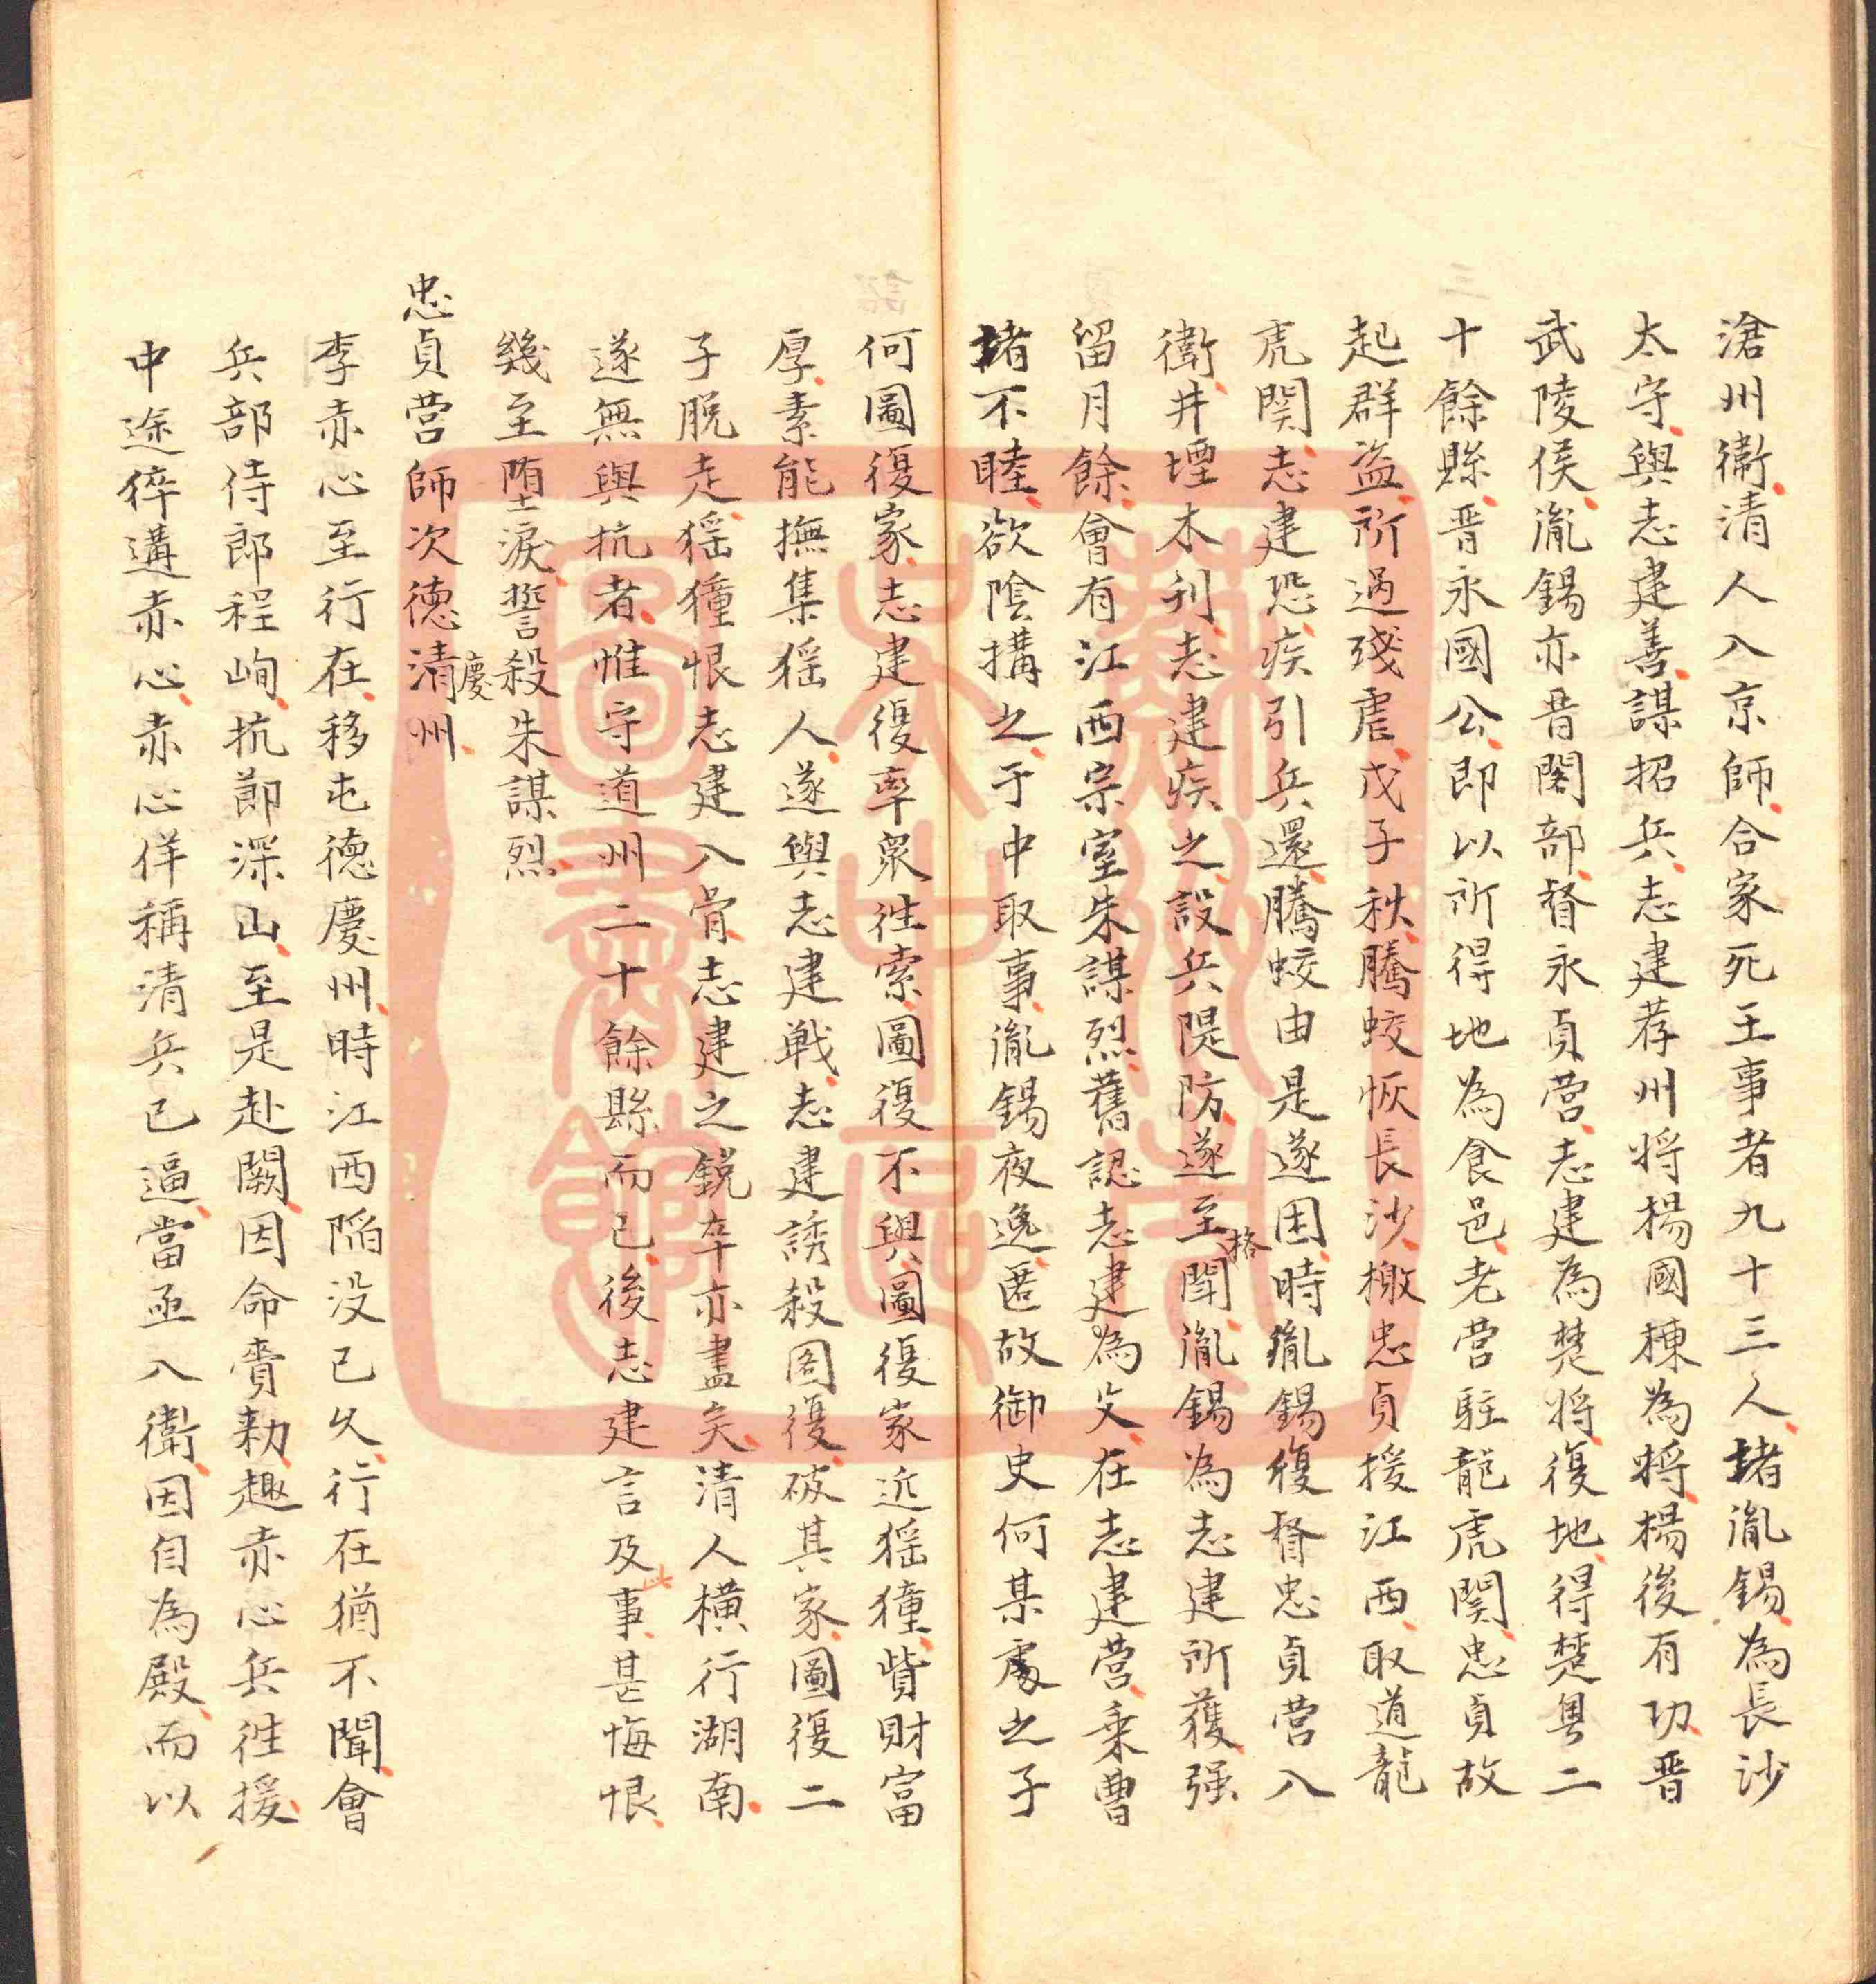 滄州衞清人入京師合家死王事者九十三人堵胤錫為長沙
太守與志建善謀招兵志建荐州將楊國棟為將楊後有功晋
武陵侯胤錫亦晋閣部督永貞营志建為楚將復地得楚粵二
十餘縣晋永國公即以所得地為食邑老营駐龍虎関忠貞故
起群盜所過殘虐戊子秋騰蛟恢長沙檄忠貞援江西取道龍
虎関志建恐疾引兵還騰蛟由是遂困時胤錫復督忠貞营入
衞井堙木刊志建疾之設兵隄防遂至格鬪胤錫為志建所獲强
留月餘會有江西宗室朱謀烈舊認志建為父在志建营乗曹
堵不睦欲陰搆之于中取事胤錫夜逸匿故御史何某處之子
何圖復家志建復率衆徃索圖復不與圖復家近猺獞貲財富
厚素能撫集猺人遂與志建戰志建誘殺図復破其家圖復二
子脱走猺獞恨志建入骨志建之銳卒亦盡矣清人橫行湖南
遂無與抗者惟守道州二十餘縣而已後志建言及事甚悔恨
幾至堕淚誓殺朱謀烈
忠貞营師次德清慶州
李赤心至行在移屯德慶州時江西陷没已久行在猶不聞會
兵部侍郎程峋抗節深山至是赴闕因命賫勑趣赤心兵徃援
中途猝遘赤心赤心佯稱清兵已逼當亟入衞因自為殿而以